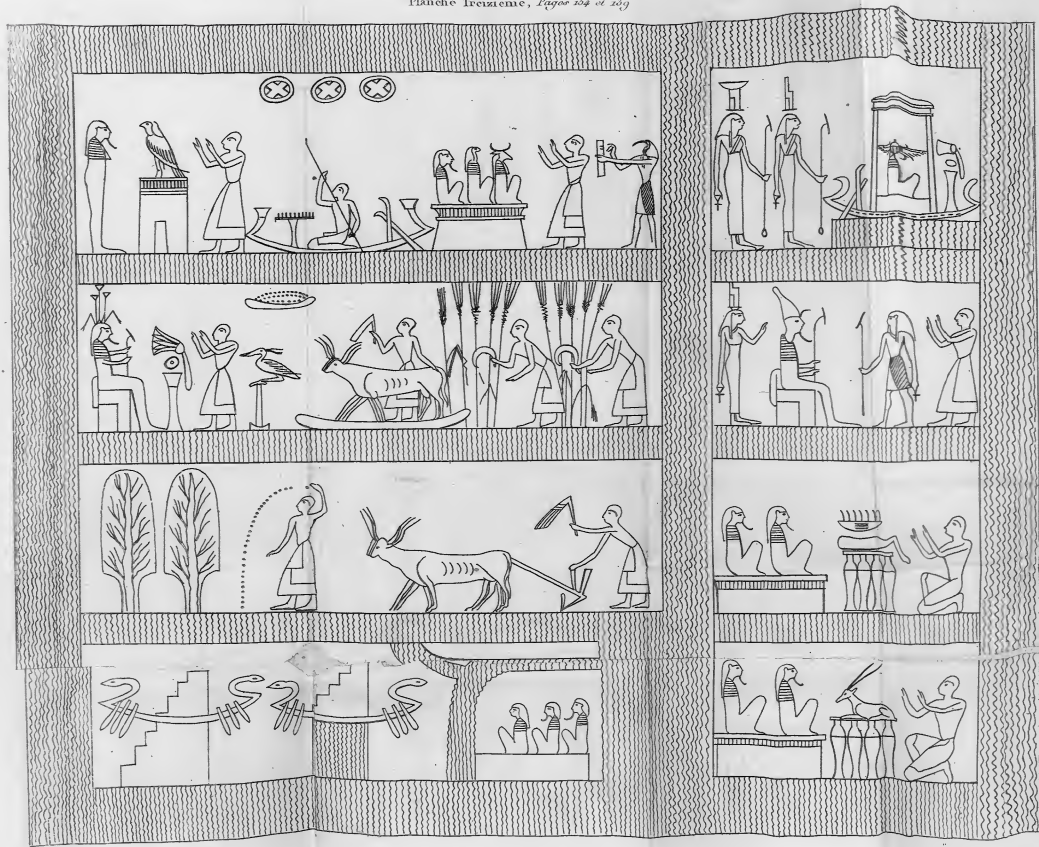 Planche Treizieme, Pages 154 et 159